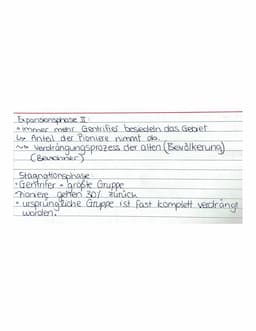 Expansionsphase II:
• immer mehr Gentrifier besiedeln das Gebiet
↳ Anteil der Pioniere nimmt ab.
~> Verdrängungsprozess der alten (Bevölkerung)
(Bewohner)
Stagnationsphase:
• Gentrifer = größte Gruppe
• Pioniere gehen 30% zurück
• ursprüngliche Gruppe ist fast komplett verdrängt
worden.